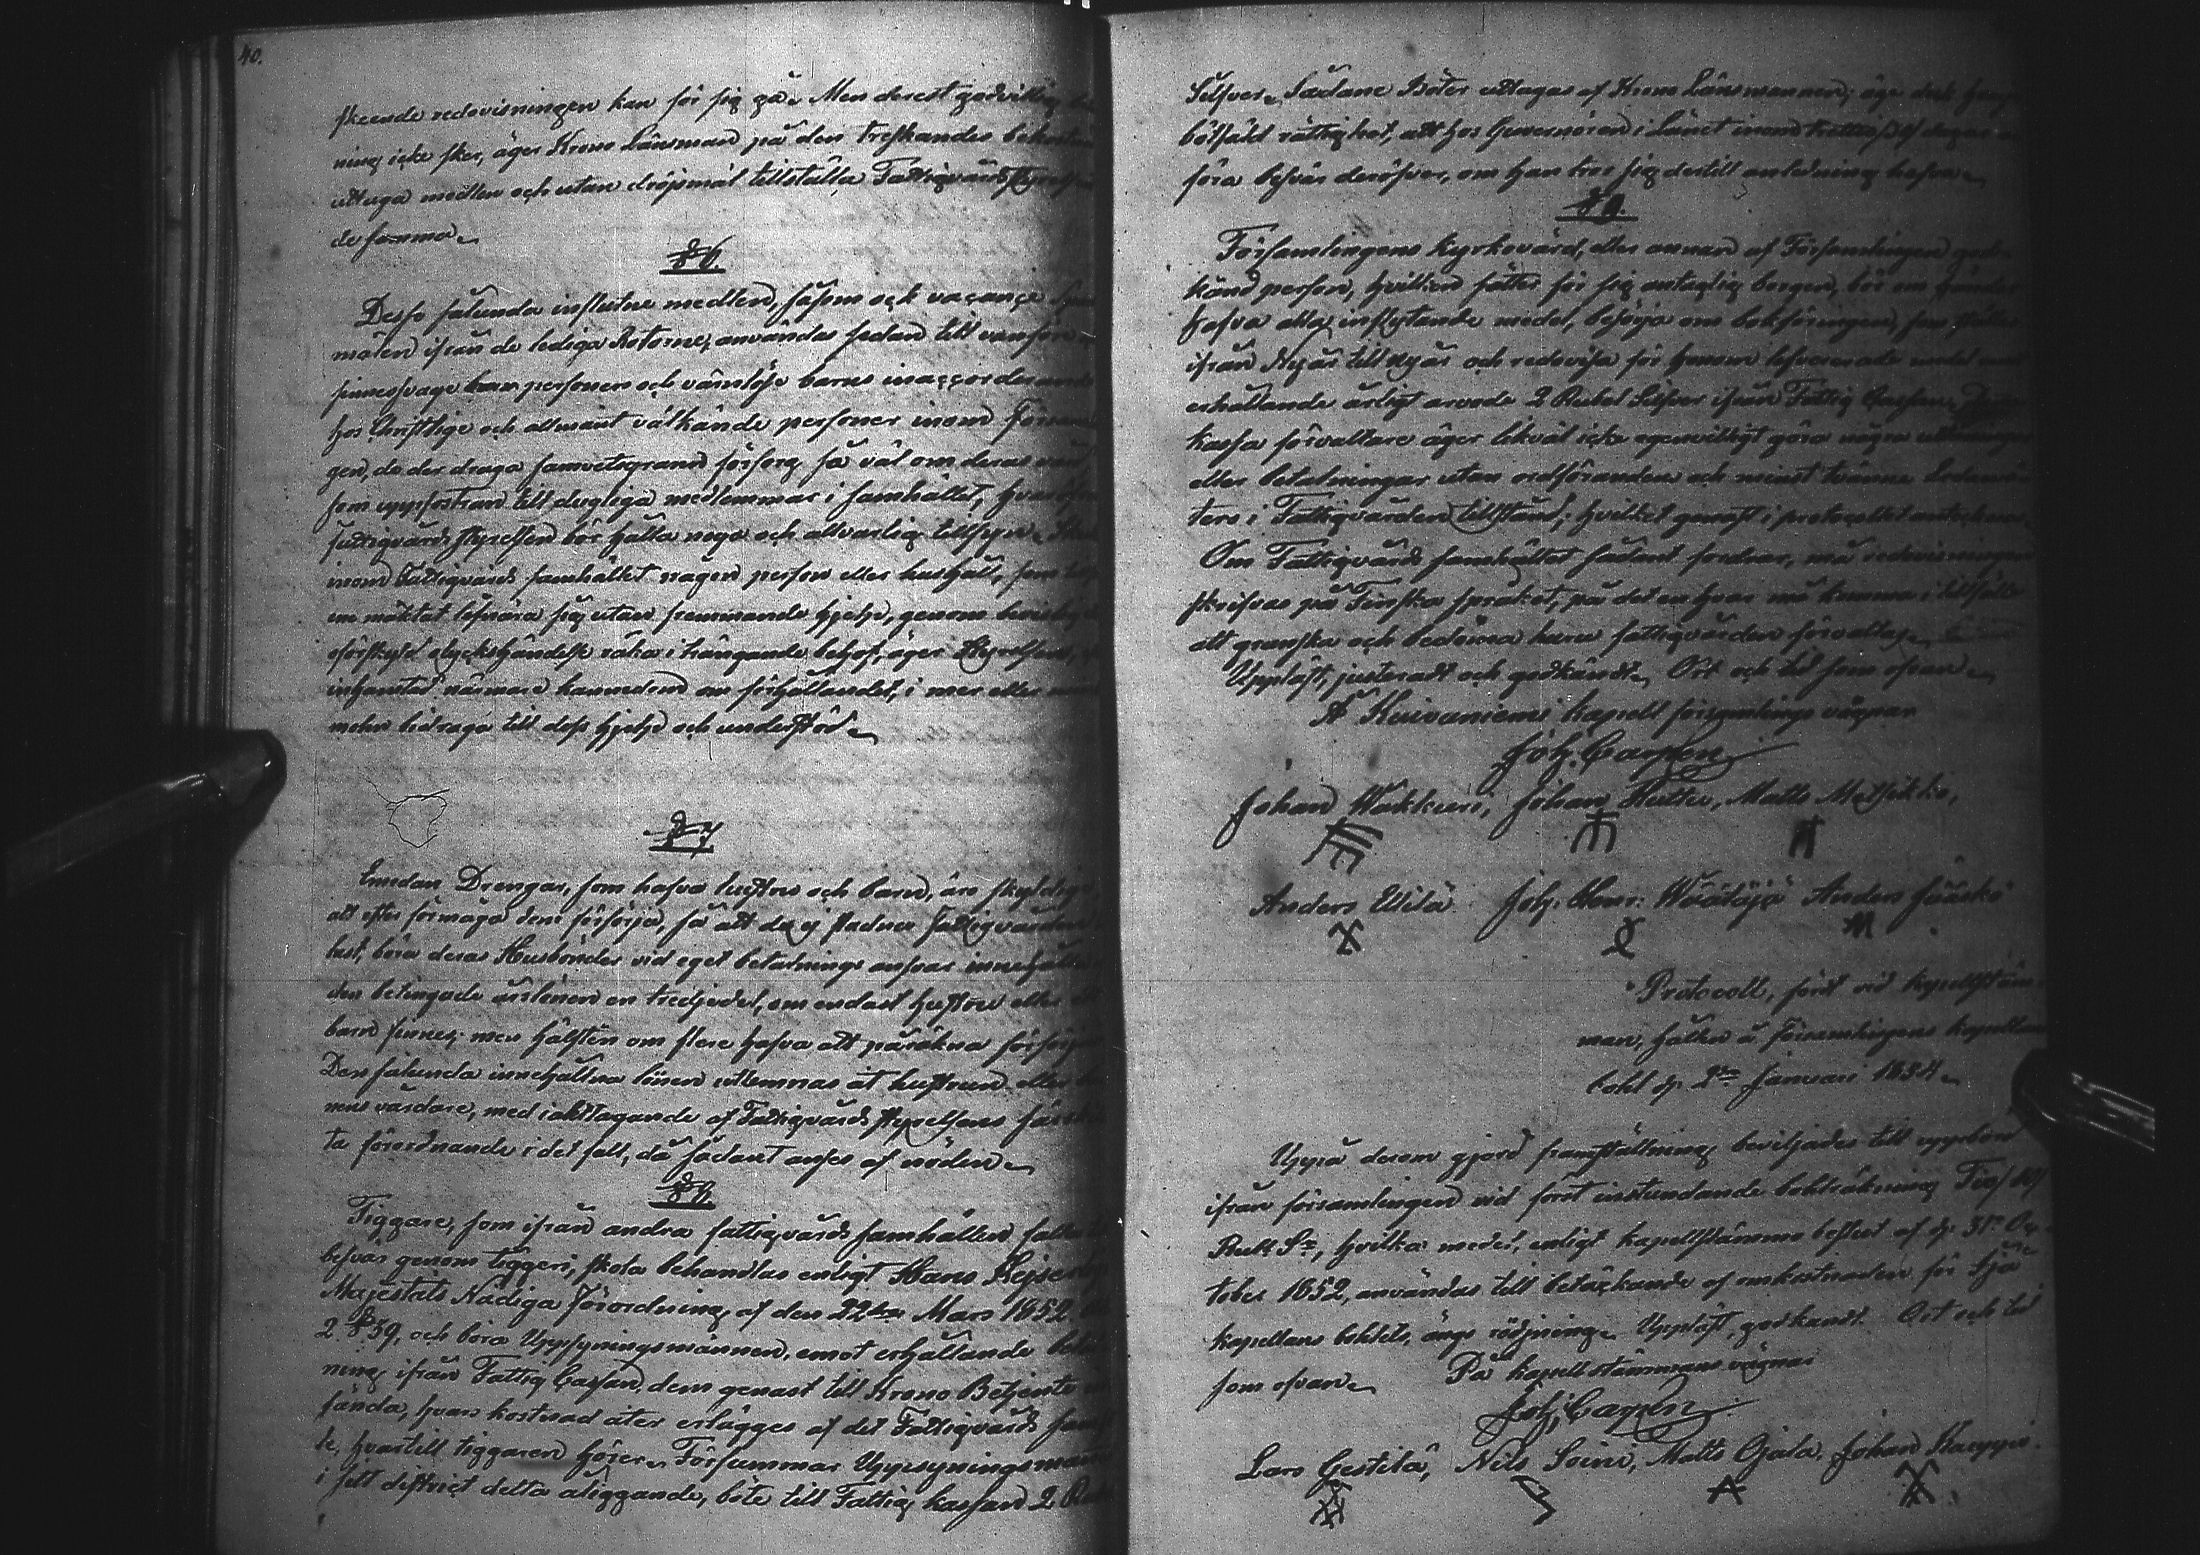 40.
skeende redovisningen kan för sig gå. Men derest godvillig
ning icke sker, äger Krono Länsman på den treskandes bekostnad
uttaga medlen och utan dröjsmål tillställa Fattigvårdsstyrelsen
desamma.
§ 6.
Desse sålunda influtne medlen, såsom och vacance
målen ifrån de lediga Rotorne, användas sedan till vanföre
sinnessvage personers och värnlöse barns inaccorderande
hos Christlige och allmänt välkände personer inom Försam
gen, de der draga samvetsgrann försorg, så väl om deras vård
som uppfostran till dugliga medlemmar i samhället,
fattigvårds styrelsen bör hålla noga och allvarlig tillsyn.
inom Fattigvårds samhället någon person eller hushåll, som
en mäktat lifnära sig utan främmande hjelp, genom
oförskyld olyckshändelse råka i trängande behof, äger Styrelsen,
inhämtad närmare kännedom om förhållandet, i mer eller
mohn bidraga till dess hjelp och understöd.
§ 7
Emedan Drengar, som hafva hustru och barn, äro skyldige
att efter förmåga dem försörja, så att de ej stadna Fattigvården
last, böra deras Husbönder vid eget betalnings ansvar innehålla
den betingade årslönen en tredjedel, om endast hustru eller ett
barn finnes; men hälften om flere hafva att påräkna försörj
Den sålunda innehållna lönen utlemnas åt hustrun eller
nens vårdare, med iakttagande af Fattigvårds styrelsens särskil
ta förordnande i det fall, då sådant anses af nöden.
§ 8
Tiggare, som ifrån andra fattigvårds samhällen falla
besvär genom tiggeri, skola behandlas enligt Hans Kejserliga
Majestäts Nådiga Förordning af den 22dra Mars 1852,
2 § 39, och böra Uppsyningsmännen, emot erhållande betal
ning ifrån Fattig Cassan, dem genast till Krono Betjente
sända, hvars kostnad åter erlägges af det Fattigvårds samhäl
le, hvartill tiggaren hörer. Försummar Uppsyningsman
i sitt district detta åliggande, böte till Fattig kassan 2 Rub
Silfver. Sådane Böter uttagas af Krono Länsmannen; äge dock
bötfäld rättighet, att hos Guvernören i Länet inom trettio /30/ dagar
föra besvär deröfver, om han tror sig dertill anledning hafva.
§ 9.
Församlingens Kyrkovärd, eller annan af Församlingen god-
känd person, hvilken sätter för sig antaglig borgen, bör om händer
hafva alla inflytande medel, besörja om bokföringen, som ställes
ifrån Nyår till nyår och redovisa för honom
erhållande årligt arvode 2 Rubel Silfver ifrån Fattig Cassan.
kassa förvaltare äger likväl icke egenvilligt göra några utlåningar
eller betalningar utan ordförandens och minst tvänne Ledamö-
ters i Fattigvården tillstånd, hvilket genast i protocollet antecknas.
Om Fattigvårds samhället sådant fordrar, må redovisningen
skrifvas på Finska språket, på det en hvar må komma i tillfälle
att granska och bedöma huru fattigvården förvaltas.
Uppläst, justeradt och godkändt. Ort och tid som ofvan.
På Kuivaniemi kapell församlings vägnar
Joh. Carplén
Johan Wakkuri, Johan Hutta, Matts Metsikkö,
Anders Ellilä Joh. Henr: Wäätäjä Anders Jääskö
Protocoll, fördt vid kapellstäm-
man, hållen å Församlingens kapellans
bohl d. 2dra Januari 1854.
Uppå derom gjord framställning beviljades till uppbörd
ifrån församlingen vid först instundande bohlräkning Tio /10/
Rub. Sr, hvilka medel, enligt kapellstämmo beslut af d. 31sta Oc-
tober 1852, användas till betäckande af omkostnaden för hjå
kapellans bohlets ängs rödjning. Uppläst, godkändt. Ort och tid
som ofvan. På kapellstämmans vägnar
Joh. Carplén
Lars Gestilä, Nils Soini, Matts Ojala, Johan Kauppi.